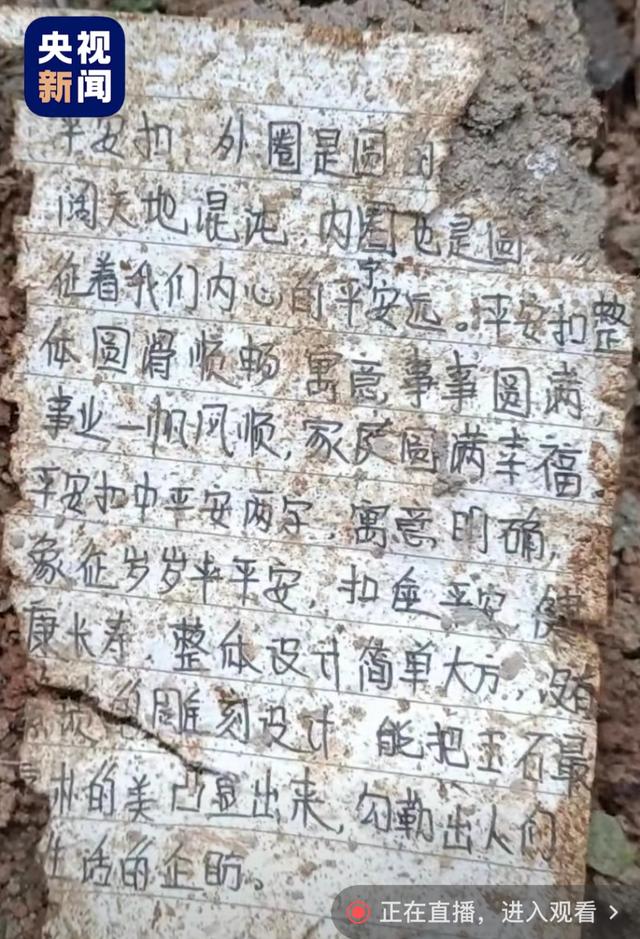 央视
新闻
平安扣，外圈是圆
阔天地混沌 内圈也是圆
征着我们内心的平宁安远。平安扣整
体圆滑顺畅 寓意事事圆满，
事业一帆风顺，家庭圆满幸福。
平安扣中平安两字，寓意明确，
象征岁岁平平安，扣座平安 健
康长寿。整体设计简单大方，没有
的雕刻设计 能把玉石最
的美凸显出来，勾勒出人们
生活的企盼。
正在直播，进入观看